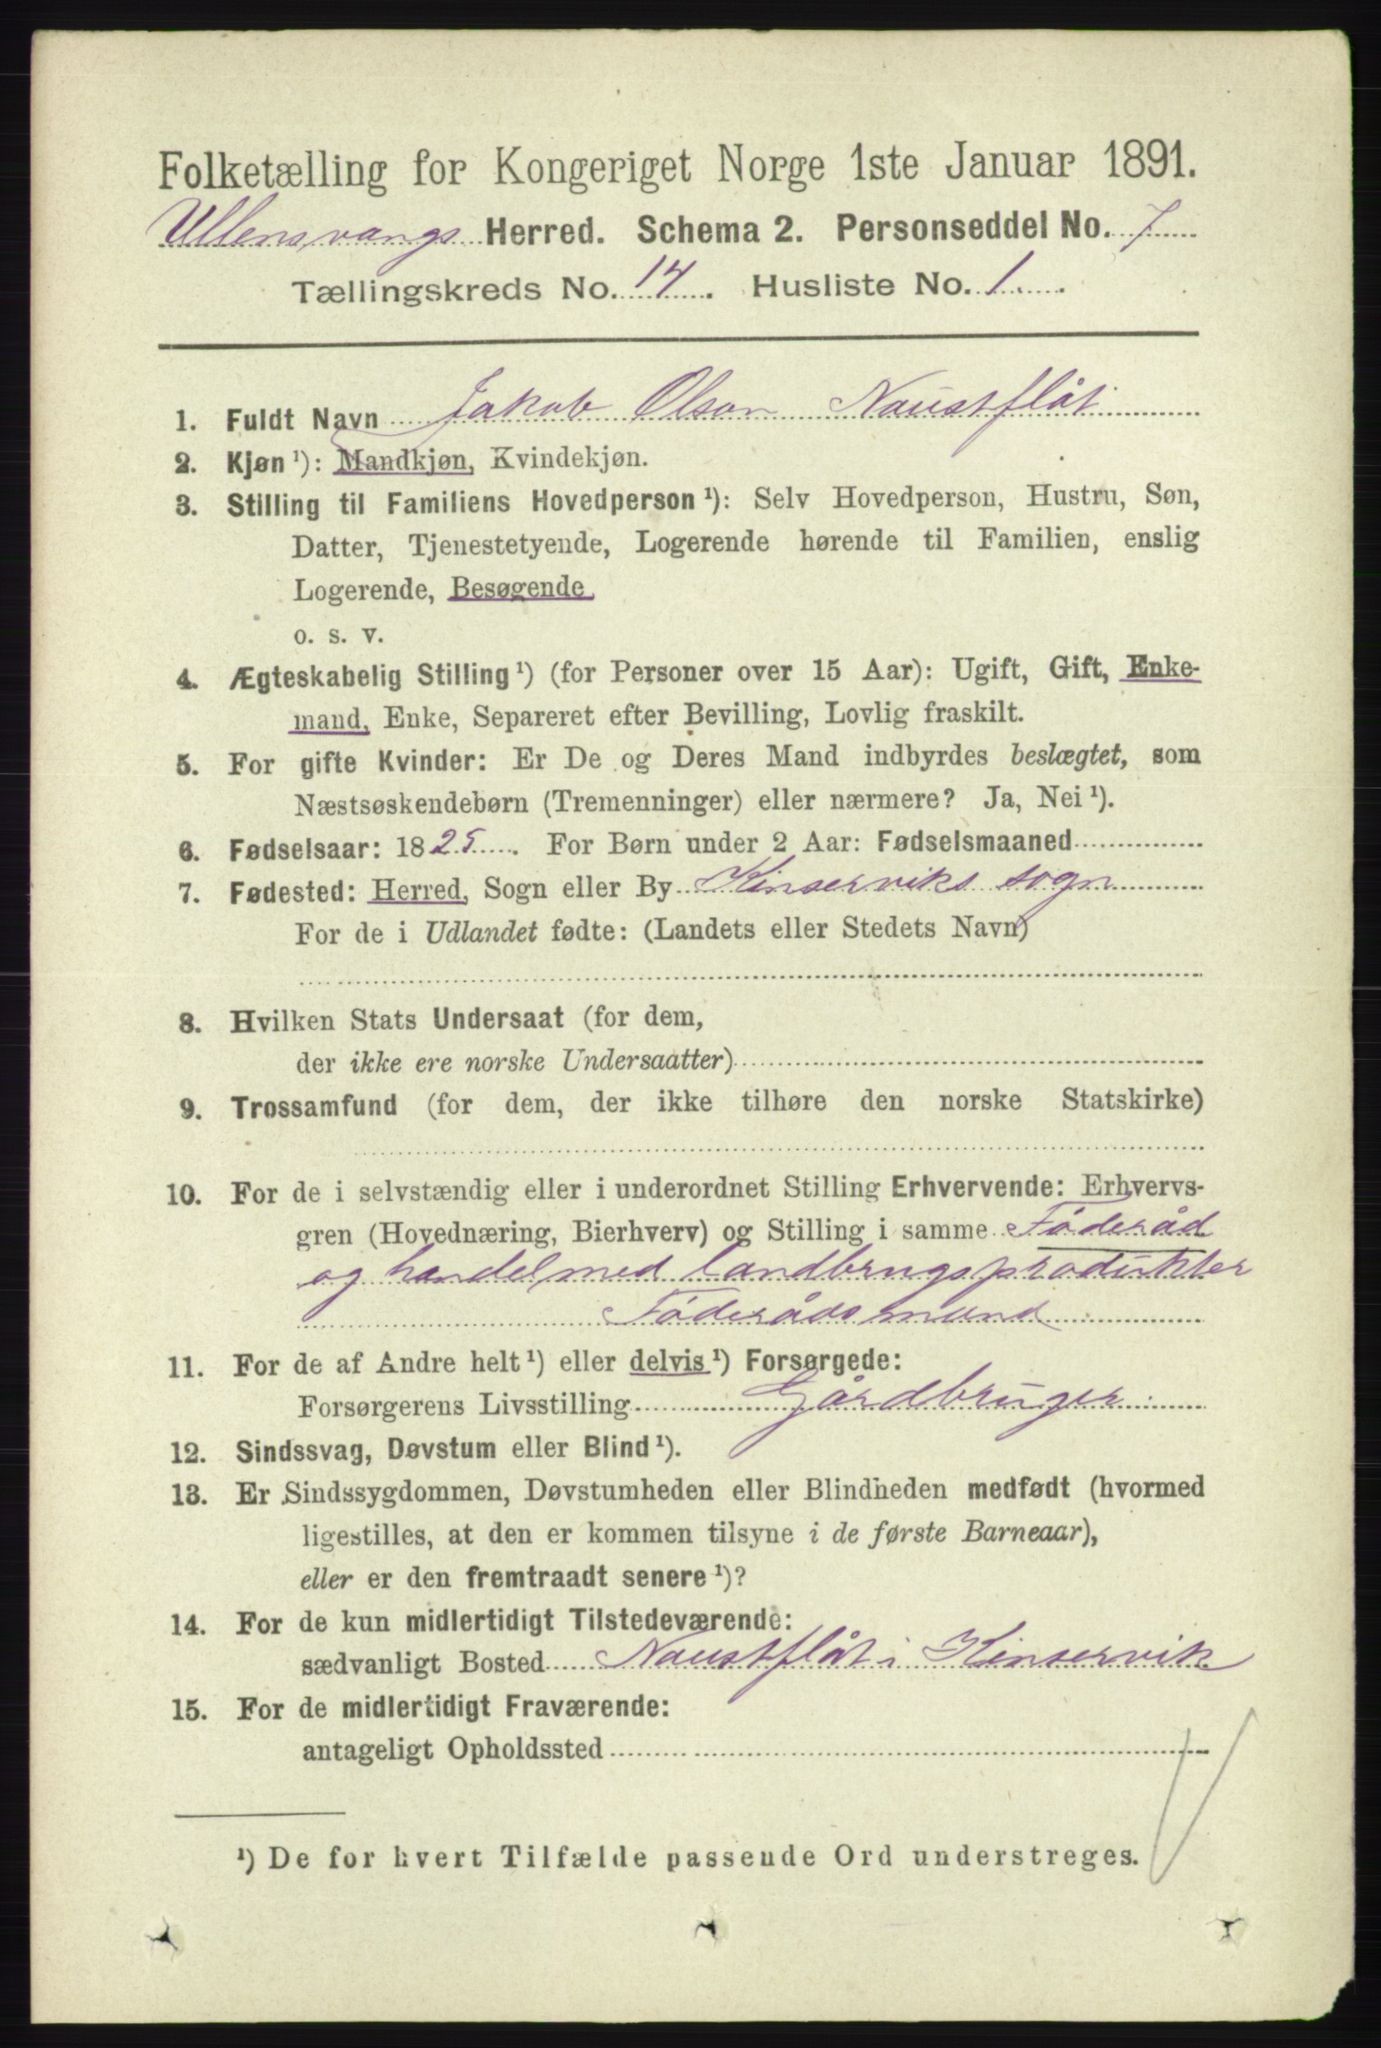 Folketælling for Kongeriget Norge 1ste Januar 1891.
Ullensvangs Herred. Schema 2. Personseddel No. 7
Tællingskreds No. 14. Husliste No. 1.
1. Fuldt Navn Jakob Olson Naustflåt
2. Kjøn ¹): Mandkjøn, Kvindekjøn.
3. Stilling til Familiens Hovedperson ¹): Selv Hovedperson, Hustru, Søn,
Datter, Tjenestetyende, Logerende hørende til Familien, enslig
Logerende, Besøgende
o. s. v.
4. Ægteskabelig Stilling ¹) (for Personer over 15 Aar): Ugift, Gift, Enke-
mand, Enke, Separeret efter Bevilling, Lovlig fraskilt.
5. For gifte Kvinder: Er De og Deres Mand indbyrdes beslægtet, som
Næstsøskendebørn (Tremenninger) eller nærmere? Ja, Nei ¹).
6. Fødselsaar: 1825. For Børn under 2 Aar: Fødselsmaaned
7. Fødested: Herred, Sogn eller By Kinserviks sogn
For de i Udlandet fødte: (Landets eller Stedets Navn)
8. Hvilken Stats Undersaat (for dem,
der ikke ere norske Undersaatter)
9. Trossamfund (for dem, der ikke tilhøre den norske Statskirke)
10. For de i selvstændig eller i underordnet Stilling Erhvervende: Erhvervs-
gren (Hovednæring, Bierhverv) og Stilling i samme Föderåd
og handel med landbrugsprodukter
Föderådsmand
11. For de af Andre helt ¹) eller delvis ¹) Forsørgede:
Forsørgerens Livsstilling Gårdbruger
12. Sindssvag, Døvstum eller Blind ¹).
13. Er Sindssygdommen, Døvstumheden eller Blindheden medfødt (hvormed
ligestilles, at den er kommen tilsyne i de første Barneaar),
eller er den fremtraadt senere ¹)?
14. For de kun midlertidigt Tilstedeværende:
sædvanligt Bosted Naustflåt i Kinservik
15. For de midlertidigt Fraværende:
antageligt Opholdssted
¹) De for hvert Tilfælde passende Ord understreges.